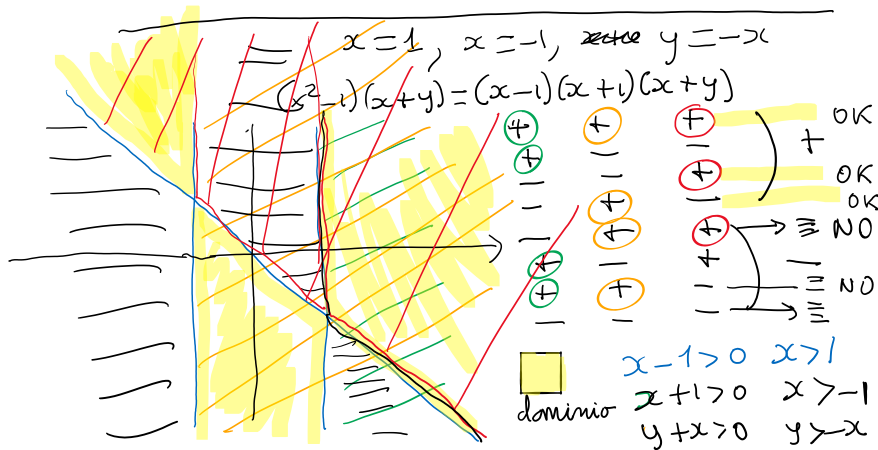 x = 1, x = -1, y = -x
(x²-1)(x+y) = (x-1)(x+1)(x+y)
+ + + OK
+ - -
- - + OK
- + - OK
- + + → ≡ NO
+ - + -
+ + - ≡ NO
- - - → ≡
+
dominio
x-1>0 x>1
x+1>0 x>-1
y+x>0 y>-x